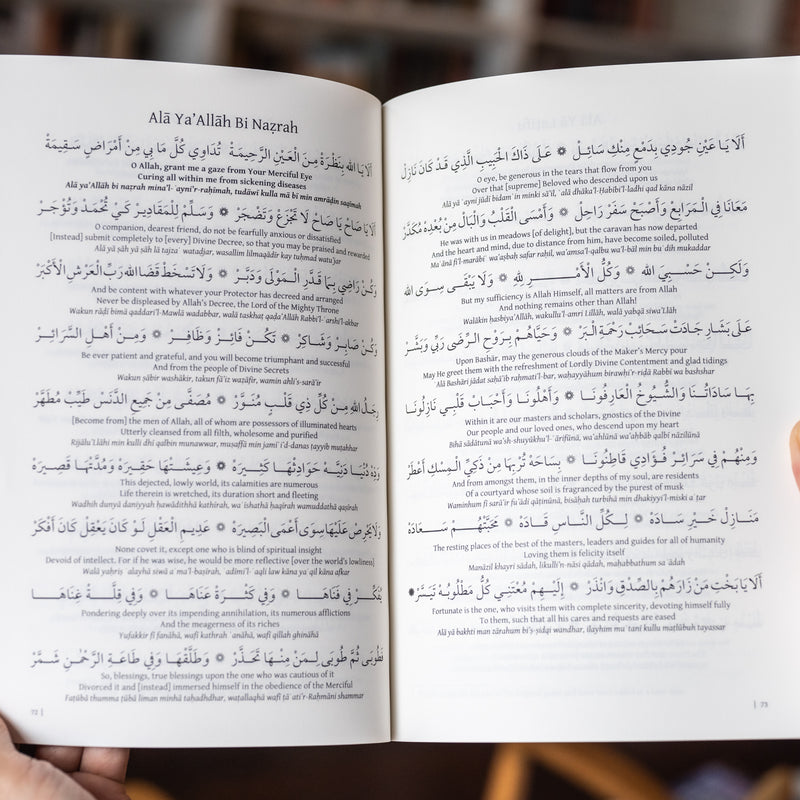 Alā Ya’Allāh Bi Naẓrah
أَلَا يَا الله بِنَظْرَة مِنَ الْعَيْنِ الرَّحِيمَةْ تُدَاوِي كُلَّ مَا بِي مِنْ أَمْرَاضٍ سَقِيمَةْ
O Allah, grant me a gaze from Your Merciful Eye
Curing all within me from sickening diseases
Alā ya’Allāh bi naẓrah mina'l-ʿayni'r-raḥīmah, tudāwī kulla mā bī min amrāḍin saqīmah
أَلَا يَا صَاحْ يَا صَاحْ لَا تَجْزَعْ وَتَضْجَرْ ۞ وَسَلِّمْ لِلْمَقَادِيرْ كَيْ تُحْمَدْ وَتُؤْجَرْ
O companion, dearest friend, do not be fearfully anxious or dissatisfied
[Instead] submit completely to [every] Divine Decree, so that you may be praised and rewarded
Alā yā ṣāḥ yā ṣāḥ lā tajzaʿ wataḍjar, wasallim lilmaqādīr kay tuḥmad watu’jar
وَكُنْ رَاضِي بِمَا قَدَّرَ الْمَوْلَى وَدَبَّرْ ۞ وَلَا تَسْخَطْ قَضَا اللهِ رَبِّ الْعَرْشِ الْأَكْبَرْ
And be content with whatever your Protector has decreed and arranged
Never be displeased by Allah's Decree, the Lord of the Mighty Throne
Wakun rāḍī bimā qaddari'l-Mawlā wadabbar, walā taskhaṭ qaḍa’Allāh Rabbi'l-ʿarshi'l-akbar
وَكُنْ صَابِرْ وَشَاكِرْ ۞ تَكُنْ فَائِزْ وَظَافِرْ ۞ وَمِنْ أَهْلِ السَّرَائِرْ
Be ever patient and grateful, and you will become triumphant and successful
And from the people of Divine Secrets
Wakun ṣābir washākir, takun fā’iz waẓāfir, wamin ahli's-sarā’ir
رِجَالُ اللهِ مِنْ كُلِّ ذِي قَلْبٍ مُنَوَّرْ ۞ مُصَفَّى مِنْ جَمِيعِ الدَّنَسْ طَيِّبْ مُطَهَّرْ
[Become from] the men of Allah, all of whom are possessors of illuminated hearts
Utterly cleansed from all filth, wholesome and purified
Rijālu'Llāhi min kulli dhī qalbin munawwar, muṣaffā min jamīʿi'd-danas ṭayyib muṭahhar
وَذِهْ دُنْيَا دَنِيَّهْ حَوَادِثْهَا كَثِيرَهْ ۞ وَعِيشَتْهَا حَقِيرَهْ وَمُدَّتْهَا قَصِيرَهْ
This dejected, lowly world, its calamities are numerous
Life therein is wretched, its duration short and fleeting
Wadhih dunyā daniyyah ḥawādithhā kathīrah, waʿishathā ḥaqīrah wamuddathā qaṣīrah
وَلَا يَحْرِصْ عَلَيْهَا سِوَى أَعْمَى الْبَصِيرَهْ ۞ عَدِيمِ الْعَقْلِ لَوْ كَانَ يَعْقِلْ كَانَ أَفْكَرْ
None covet it, except one who is blind of spiritual insight
Devoid of intellect. For if he was wise, he would be more reflective [over the world's lowliness]
Walā yaḥriṣ ʿalayhā siwā aʿma'l-baṣīrah, ʿadīmi'l-ʿaqli law kāna yaʿqil kāna afkar
يُفَكِّرْ فِي فَنَاهَا ۞ وَفِي كَثْرَةْ عَنَاهَا ۞ وَفِي قِلَّةْ غِنَاهَا
Pondering deeply over its impending annihilation, its numerous afflictions
And the meagerness of its riches
Yufakkir fī fanāhā, wafī kathrahʿanāhā, wafī qillah ghināhā
فَطُوبَى ثُمَّ طُوبَى لِمَنْ مِنْهَا تَحَذَّرْ ۞ وَطَلَّقَهَا وَفِي طَاعَةِ الرَّحْمَٰنِ شَمَّرْ
So, blessings, true blessings upon the one who was cautious of it
Divorced it and [instead] immersed himself in the obedience of the Merciful
Faṭūbā thumma ṭūbā liman minhā taḥadhdhar, waṭallaqhā wafī ṭāʿati'r-Raḥmāni shammar
72 |
أَلَا يَا عَيْنِ جُودِي بِدَمْعٍ مِنْكِ سَائِلْ ۞ عَلَى ذَاكَ الْحَبِيبِ الَّذِي قَدْ كَانَ نَازِلْ
O eye, be generous in the tears that flow from you
Over that [supreme] Beloved who descended upon us
Alā yāʿayni jūdī bidamʿin minki sā’il, ʿalā dhāka'l-Ḥabībi'l-ladhī qad kāna nāzil
مَعَانَا فِي الْمَرَابِعْ وَأَصْبَحَ سَفْرْ رَاحِلْ ۞ وَأَمْسَى الْقَلْبُ وَالْبَالُ مِنْ بُعْدِهْ مُكَدَّرْ
He was with us in meadows [of delight], but the caravan has now departed
And the heart and mind, due to distance from him, have become soiled, polluted
Maʿānā fi'l-marābiʿ wa'aṣbaḥ safar raḥil, wa'amsa'l-qalbu wa'l-bāl min buʿdih mukaddar
وَلَكِنْ حَسْبِيَ الله ۞ وَكُلُّ الْأَمْرِ لِلّٰهِ ۞ وَلَا يَبْقَى سِوَى الله
But my sufficiency is Allah Himself, all matters are from Allah
And nothing remains other than Allah!
Walākin ḥasbiya’Allāh, wakullu'l-amri Lillāh, walā yabqā siwa'Llāh
عَلَى بَشَّارِ جَادَتْ سَحَائِبْ رَحْمَةِ الْبَرّ ۞ وَحَيَّاهُمْ بِرَوْحِ الرِّضَى رَبِّي وَبَشَّرْ
Upon Bashār, may the generous clouds of the Maker's Mercy pour
May He greet them with the refreshment of Lordly Divine Contentment and glad tidings
Alā Bashāri jādat saḥā’ib raḥmati'l-bar, waḥayyāhum birawḥi'r-riḍā Rabbi wa bashshar
بِهَا سَادَاتُنَا وَالشُّيُوخُ الْعَارِفُونَا ۞ وَأَهْلُونَا وَأَحْبَابْ قَلْبِي نَازِلُونَا
Within it are our masters and scholars, gnostics of the Divine
Our people and our loved ones, who descend upon my heart
Bihā sādātunā wa'sh-shuyūkhu'l-ʿārifūnā, wa'ahlūnā wa'aḥbāb qalbī nāzilūnā
وَمِنْهُمْ فِي سَرَائِرْ فُؤَادِي قَاطِنُونَا ۞ بِسَاحَهْ تُرْبِهَا مِنْ ذَكِيِّ الْمِسْكِ أَعْطَرْ
And from amongst them, in the inner depths of my soul, are residents
Of a courtyard whose soil is fragranced by the purest of musk
Waminhum fī sarā’ir fu’ādī qāṭinūnā, bisāḥah turbihā min dhakiyyi'l-miski aʿṭar
مَنَازِلْ خَيْرِ سَادَهْ ۞ لِكُلِّ النَّاسِ قَادَهْ ۞ مَحَبَّتْهُمْ سَعَادَهْ
The resting places of the best of masters, leaders and guides for all of humanity
Loving them is felicity itself
Manāzil khayri sādah, likulli'n-nāsi qādah, maḥabbathum saʿādah
أَلَا يَا بَخْتِ مَنْ زَارَهُمْ بِالصِّدْقِ وَانْذَرْ ۞ إِلَيْهِمْ مُعْتَنِي كُلُّ مَطْلُوبُهْ تَيَسَّرْ
Fortunate is the one, who visits them with complete sincerity, devoting himself fully
To them, such that all his cares and requests are eased
Alā yā bakhti man zārahum bi's-ṣidqi wandhar, ilayhim muʿtanī kullu maṭlūbuh tayassar
| 73